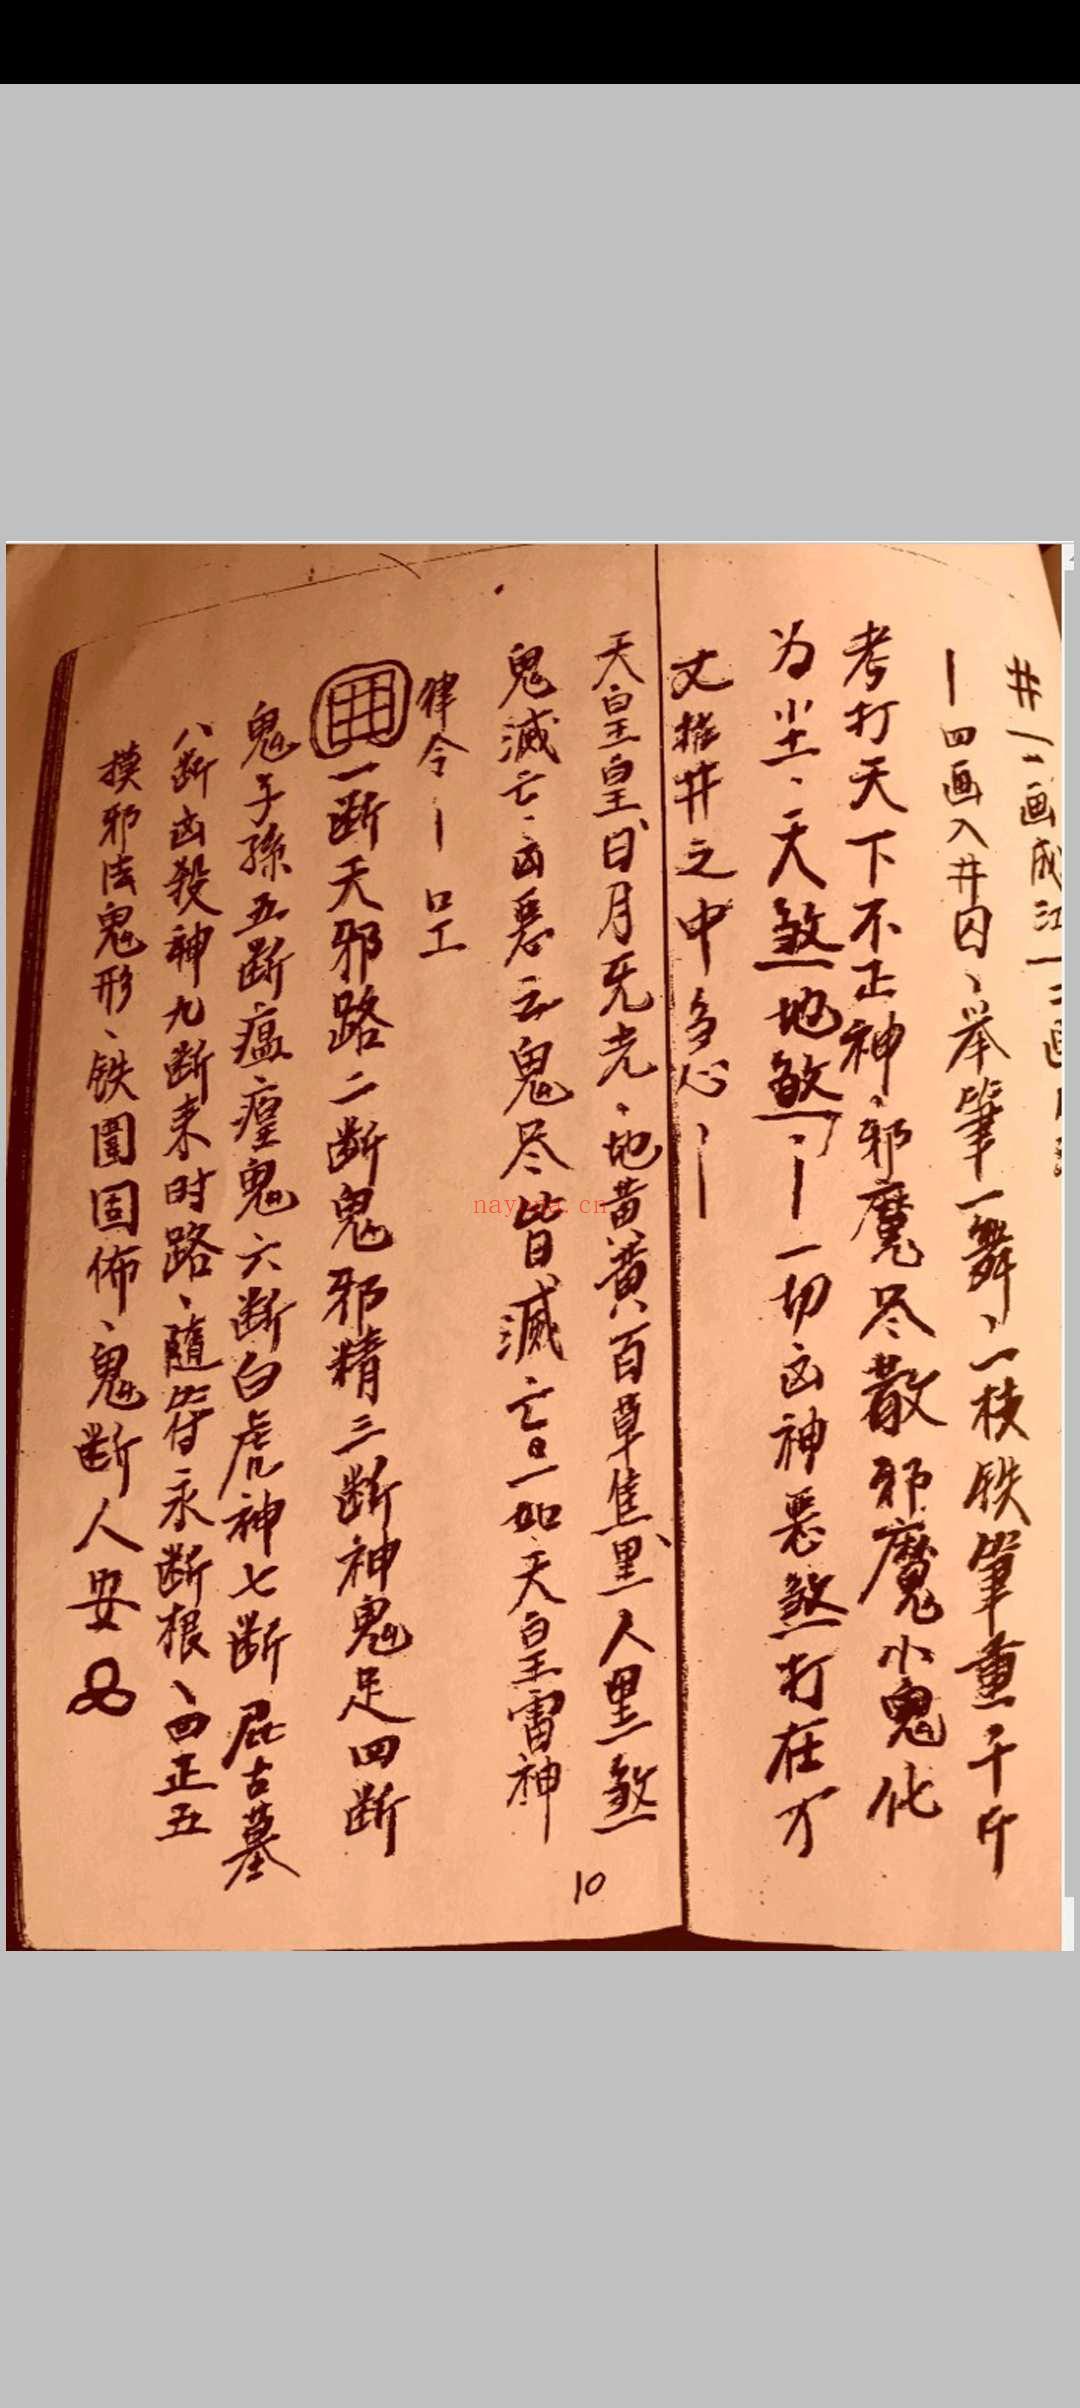 井一画成江一二画
一四画入井囚、举筆一舞、一枝铁筆重千斤
考打天下不正神、邪魔尽散邪魔小鬼化
为尘、天煞地煞、一一切凶神恶煞打在万
丈推井之中
天皇皇日月无光、地黄黄百草焦黑人黑煞
鬼滅亡、凶惡云鬼尽皆滅亡一如天皇雷神
律令一
一断天邪路二断鬼邪精三断神鬼足四断
鬼子孫五断瘟癀鬼六断白虎神七断屁古墓
八断凶殺神九断来时路、隨符永断根、四正五
摸邪法鬼形、铁圍固佈、鬼断人安
10
nayona.cn